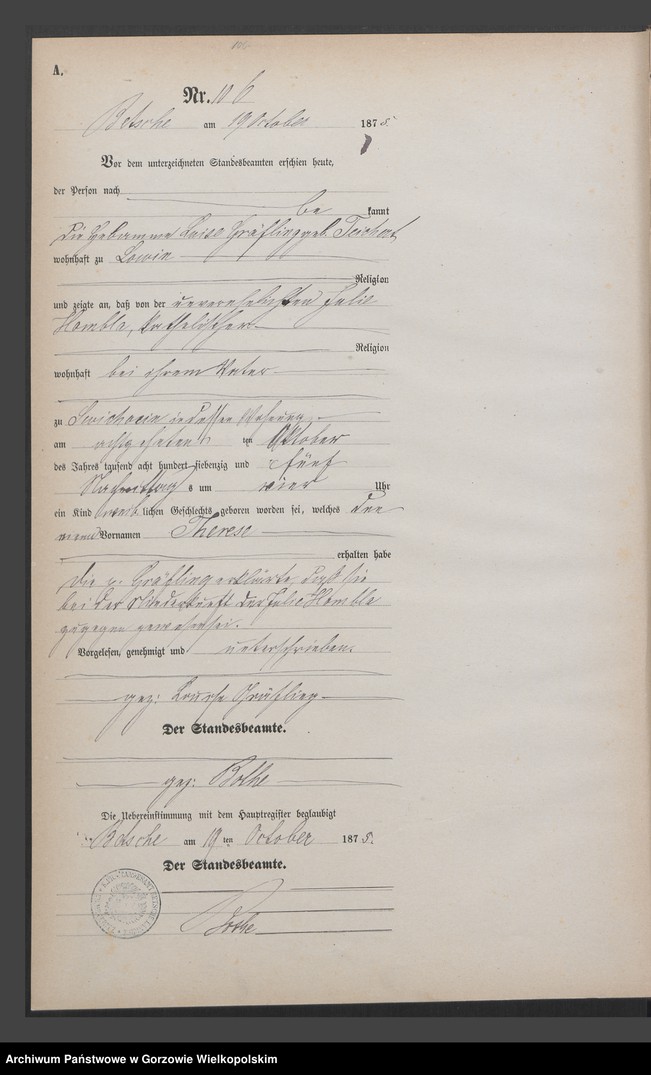 A.
Nr. 106
Betsche am 19 October 1875
Vor dem unterzeichneten Standesbeamten erschien heute,
der Person nach
be kannt
die Hebamme Luise Gräfling geb. Teichert
wohnhaft zu Lowin
Religion
und zeigte an, daß von der unverehelichten Julie
Hambla, katholischer
Religion
wohnhaft bei ihrem Vater
zu in dessen Wohnung
am achtzehnten ten Oktober
des Jahres tausend acht hundert siebenzig und fünf
Nachmittag s um vier Uhr
ein Kind weib lichen Geschlechts geboren worden sei, welches den
Vornamen Therese
erhalten habe
Die p. Gräfling erklärte, daß sie
bei der Niederkunft der Julie Hambla
zugegen gewesen sei.
Vorgelesen, genehmigt und unterschrieben.
gez: Louise Gräfling
Der Standesbeamte.
gez: Bothe
Die Uebereinstimmung mit dem Hauptregister beglaubigt
Betsche am 19 ten October 1875.
Der Standesbeamte.
Bothe
Archiwum Państwowe w Gorzowie Wielkopolskim